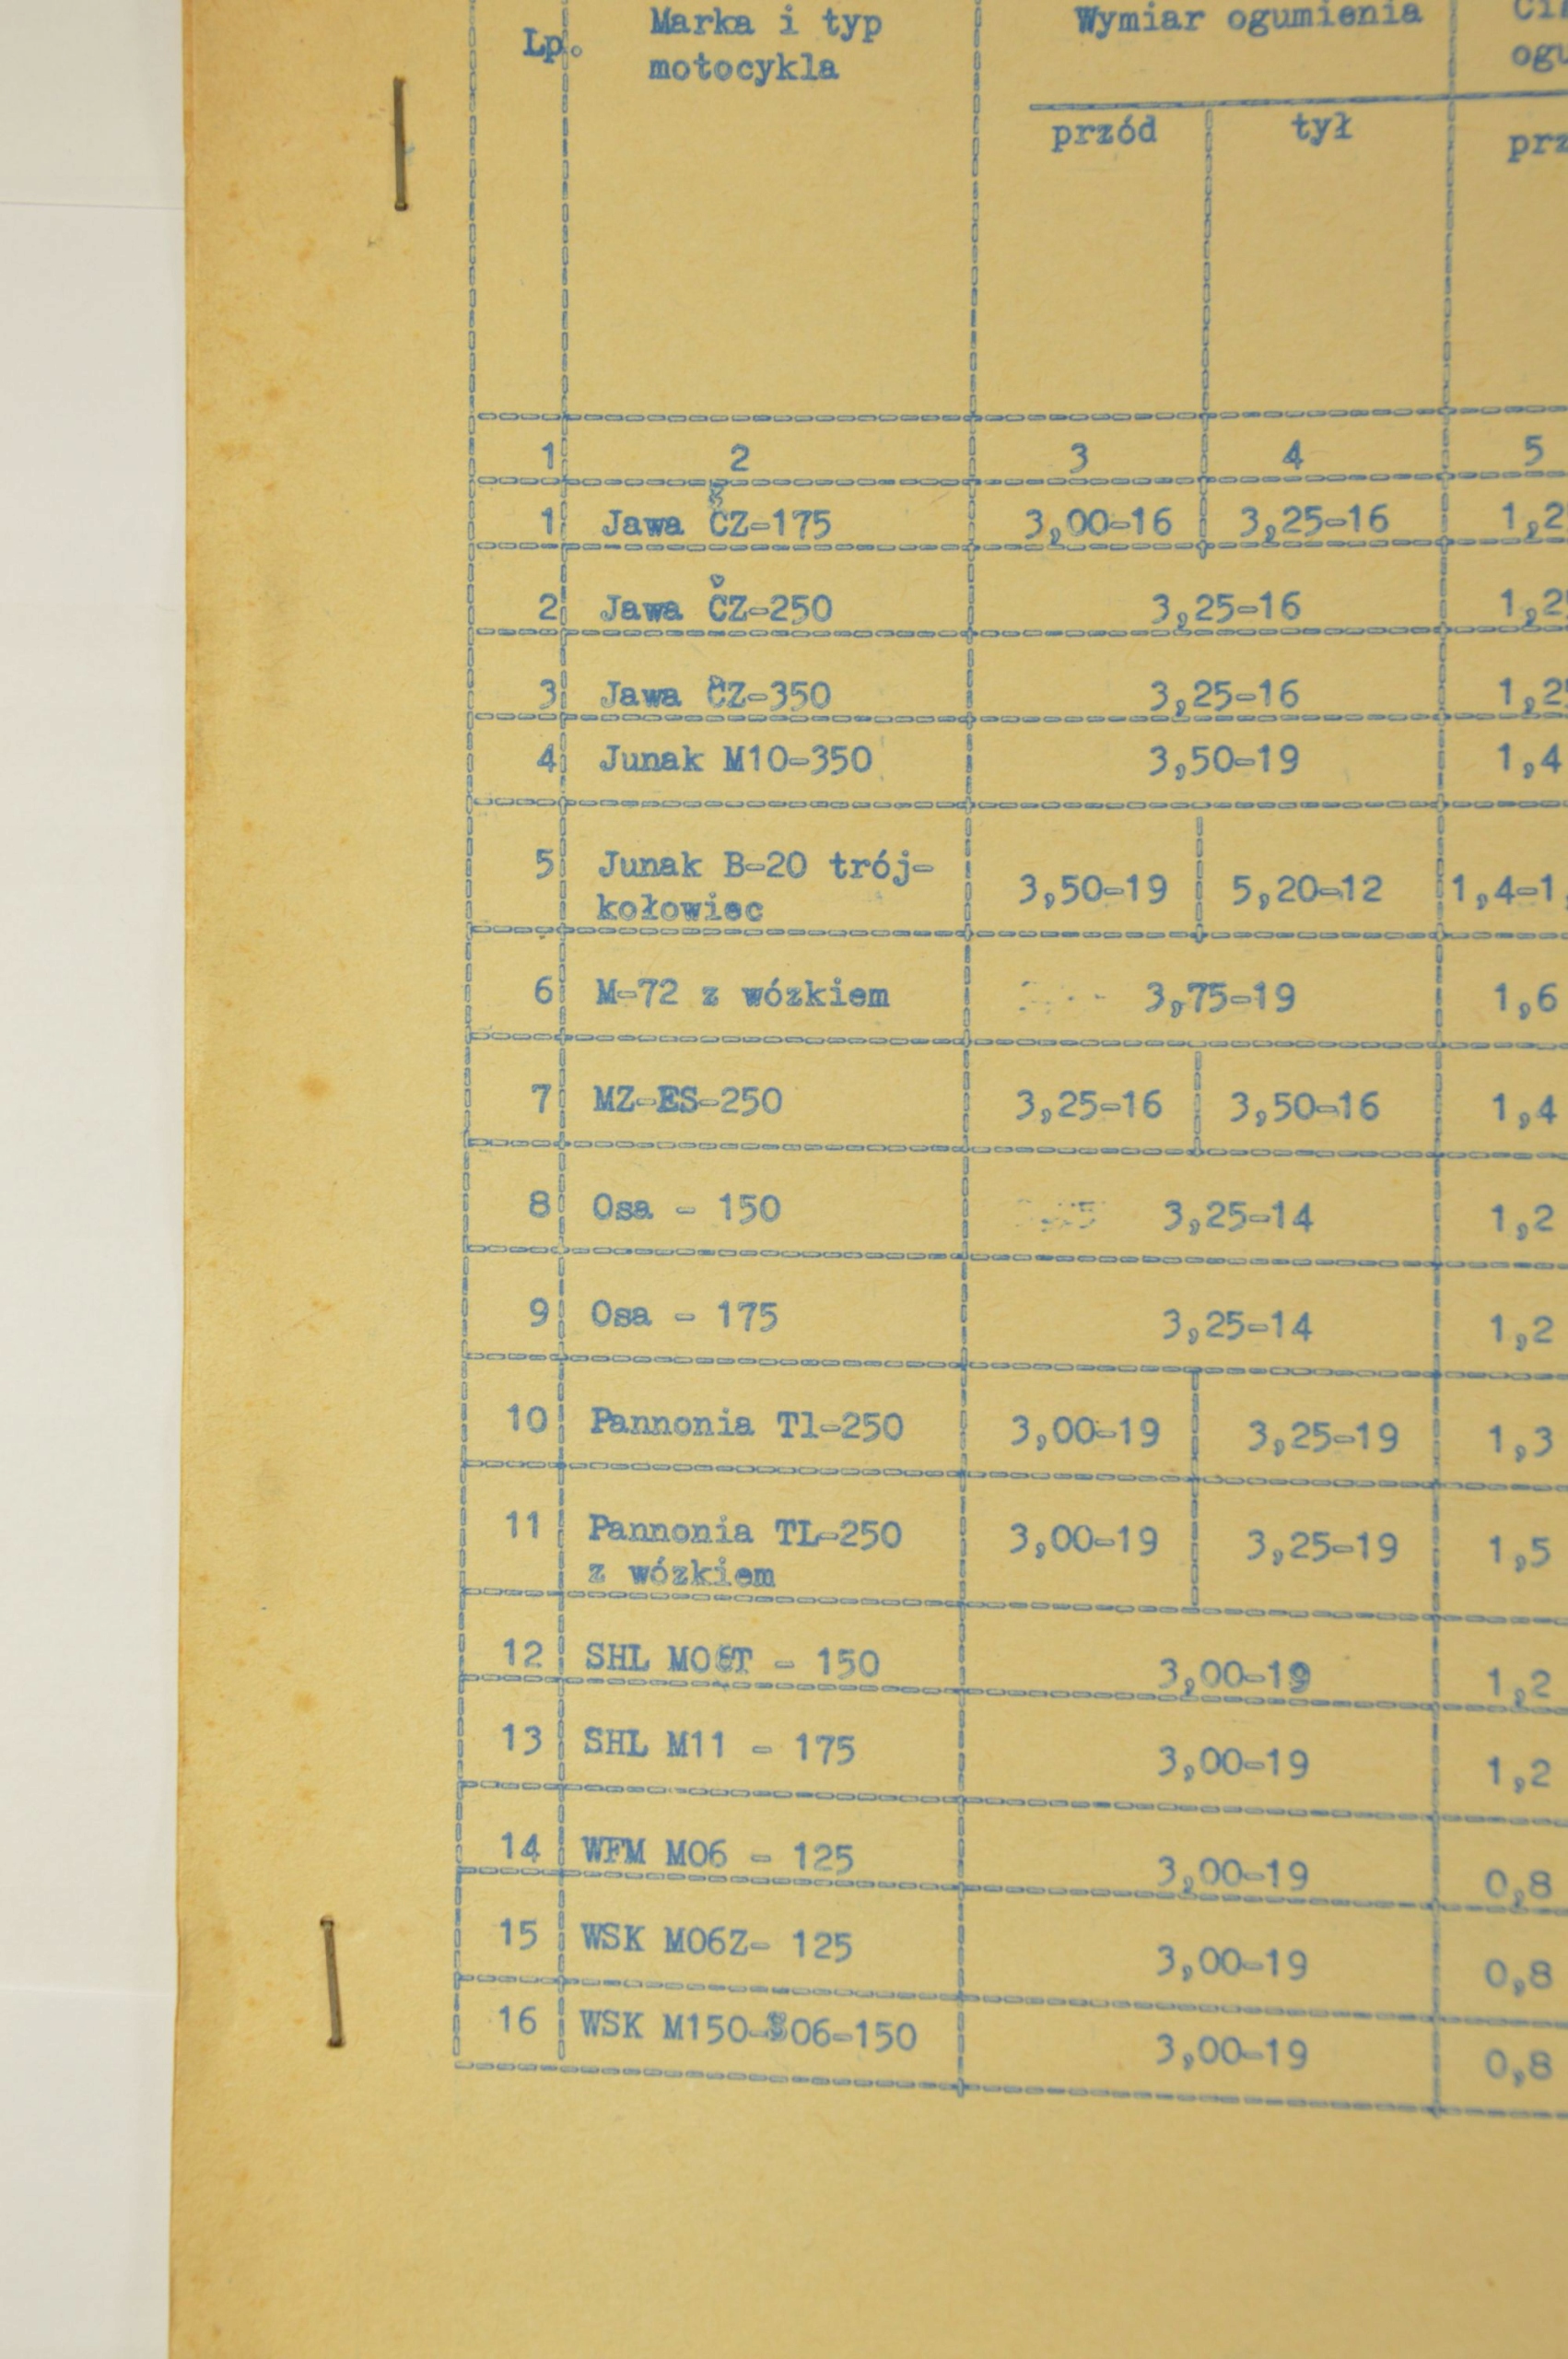 Lp. Marka i typ Wymiar ogumienia
motocykla
przód tył
1 2 3 4 5
1 Jawa ČZ-175 3,00-16 3,25-16 1,2
2 Jawa ČZ-250 3,25-16 1,2
3 Jawa ČZ-350 3,25-16 1,2
4 Junak M10-350 3,50-19 1,4
5 Junak B-20 trój-
kołowiec 3,50-19 5,20-12 1,4-1,
6 M-72 z wózkiem 3,75-19 1,6
7 MZ-ES-250 3,25-16 3,50-16 1,4
8 Osa - 150 3,25-14 1,2
9 Osa - 175 3,25-14 1,2
10 Pannonia Tl-250 3,00-19 3,25-19 1,3
11 Pannonia TL-250 3,00-19 3,25-19 1,5
z wózkiem
12 SHL M06T - 150 3,00-19 1,2
13 SHL M11 - 175 3,00-19 1,2
14 WFM M06 - 125 3,00-19 0,8
15 WSK M06Z- 125 3,00-19 0,8
16 WSK 3,00-19 0,8